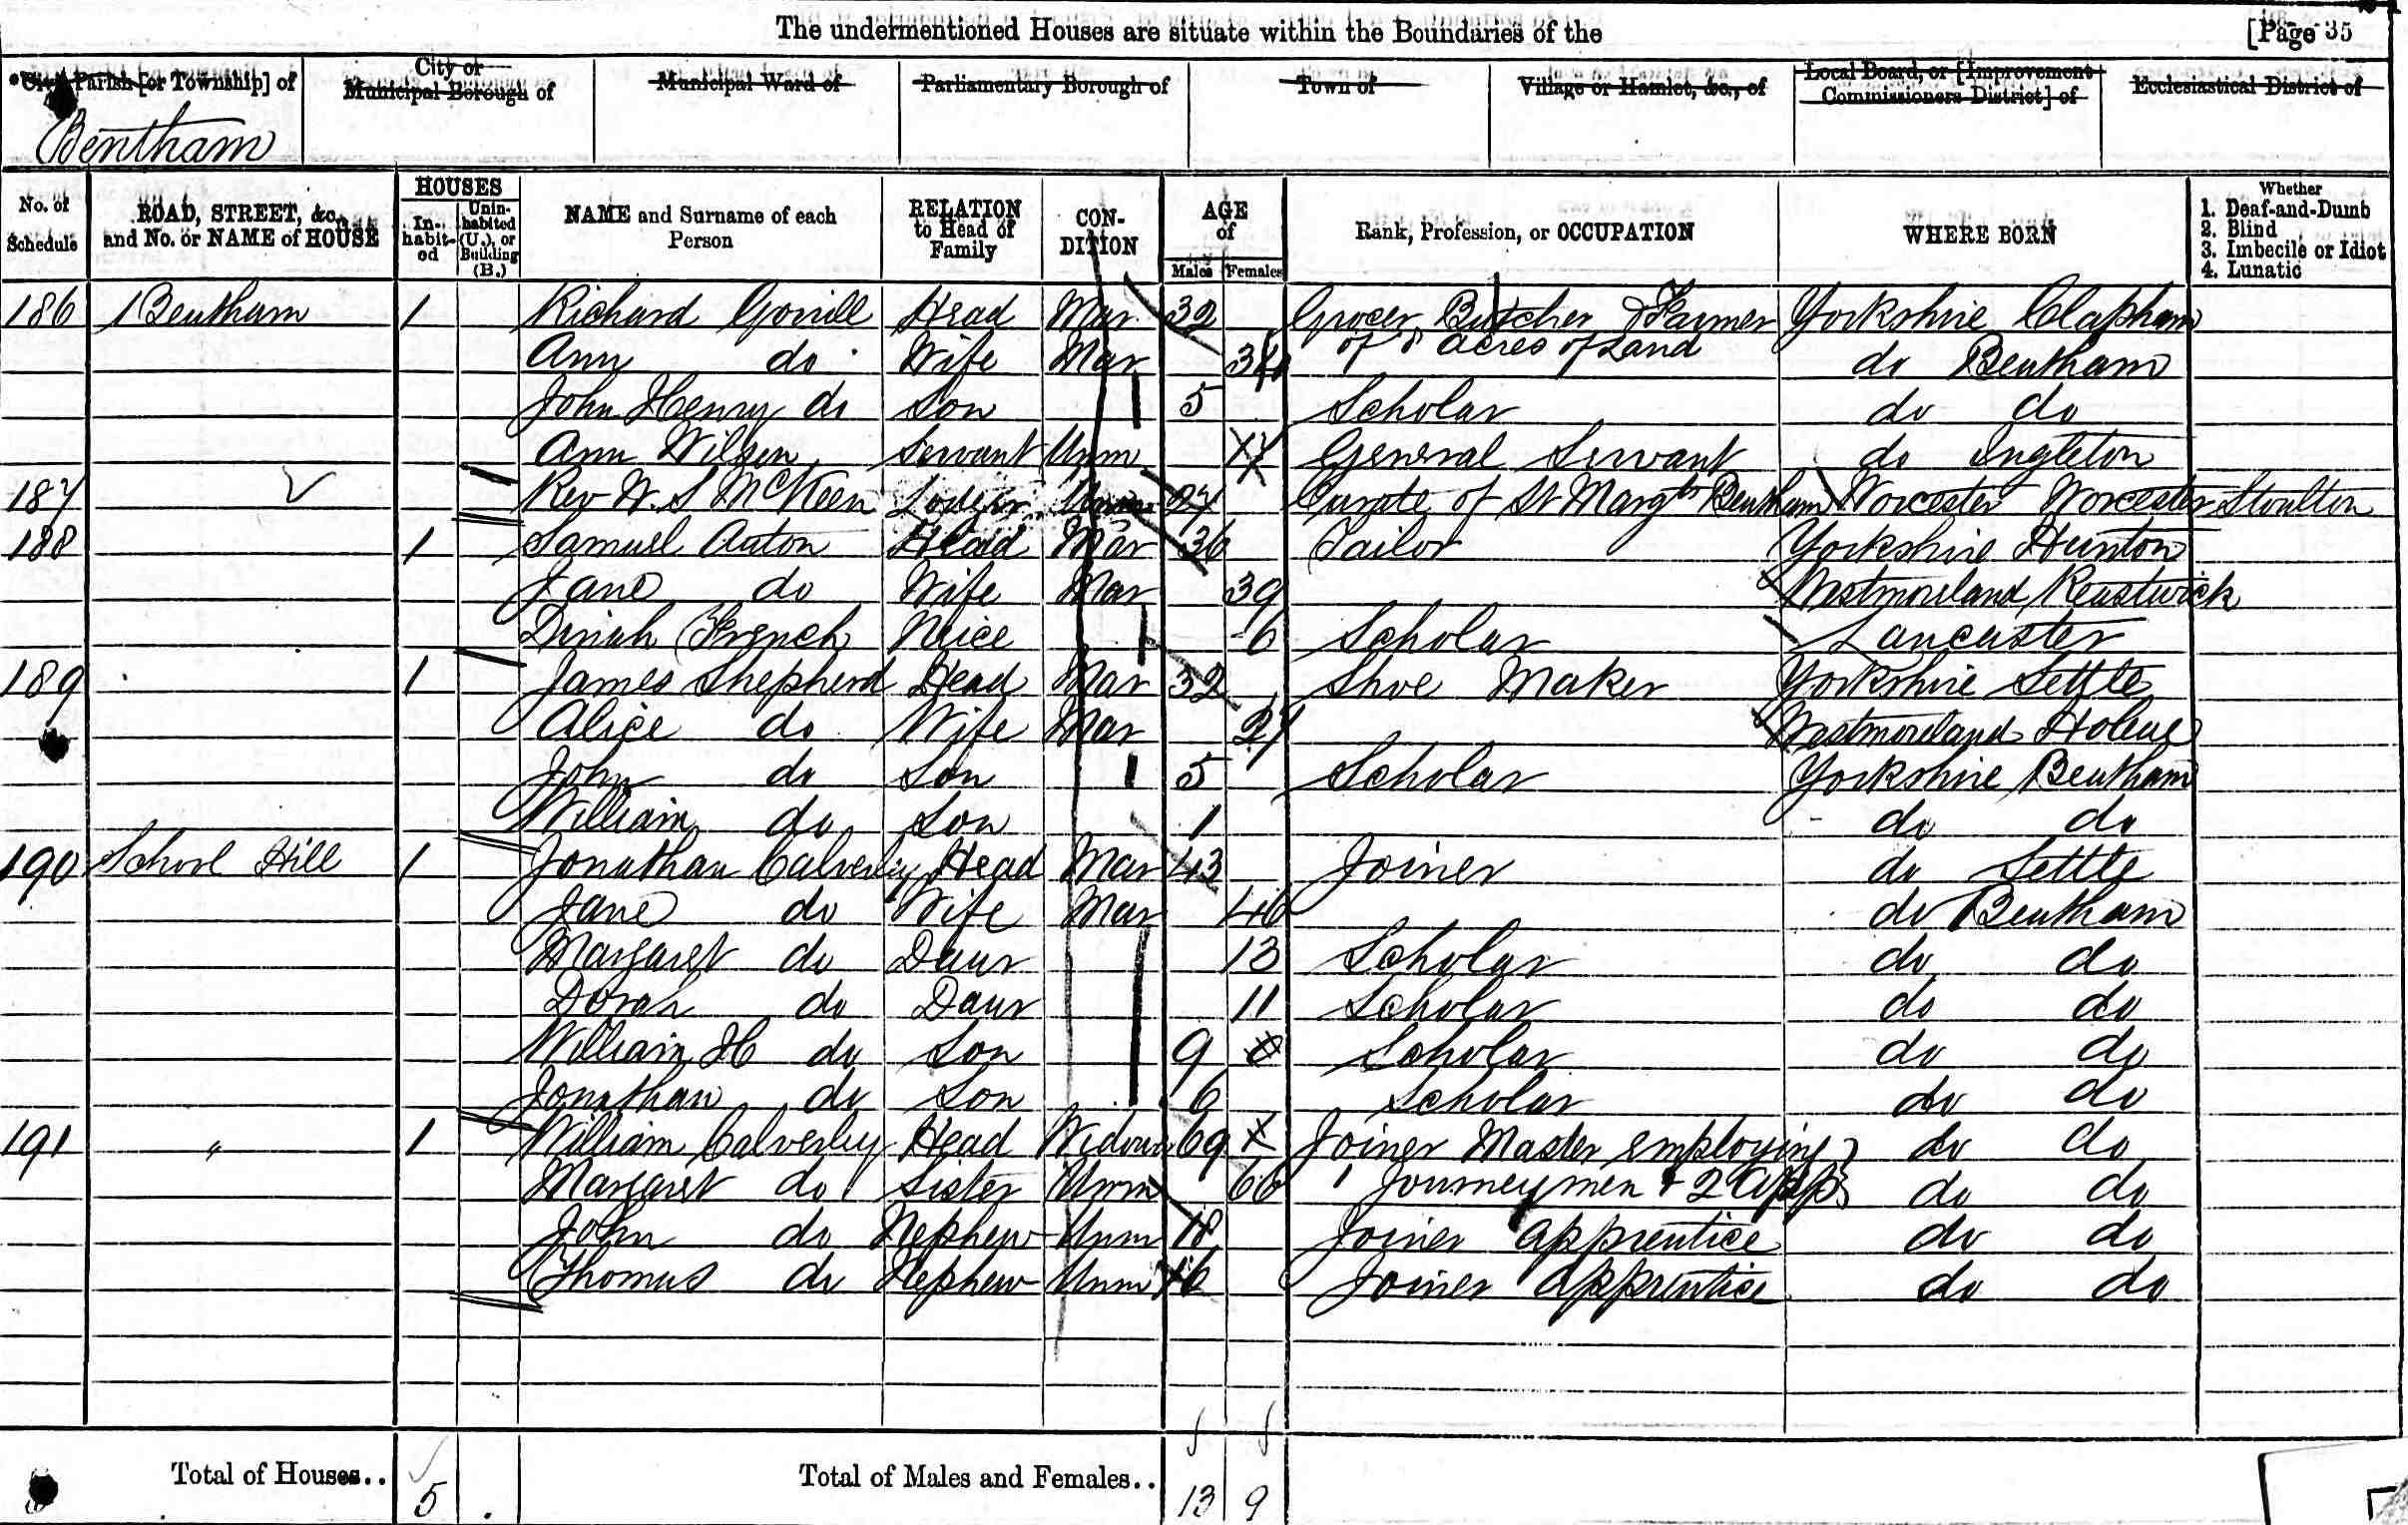 The undermentioned Houses are situate within the Boundaries of the [Page 35
Parish [or Township] of City or Municipal Borough of Municipal Ward of Parliamentary Borough of Town of Village or Hamlet, &c., of Local Board, or [Improvement Commissioners District] of Ecclesiastical District of
Bentham
No. of Schedule ROAD, STREET, &c., and No. or NAME of HOUSE HOUSES In-habit-ed Unin-habited (U.), or Building (B.) NAME and Surname of each Person RELATION to Head of Family CON-DITION AGE of Males Females Rank, Profession, or OCCUPATION WHERE BORN Whether 1. Deaf-and-Dumb 2. Blind 3. Imbecile or Idiot 4. Lunatic
186 Bentham 1 Richard Gorrill Head Mar 32 Grocer Butcher & Farmer Yorkshire Clapham
Ann do Wife Mar of 8 acres of Land do Bentham
John Henry do Son 5 Scholar do do
Ann Wilson Servant Unm 17 General Servant do Ingleton
187 Rev W. S McKeen Lodger Unm 27 Curate of St Margts Bentham Worcester Worcester Stoulton
188 1 Samuel Anton Head Mar 36 Tailor Yorkshire Hunton
Jane do Wife Mar 39 Westmoreland Keastwick
Dinah French Neice 6 Scholar Lancaster
189 1 James Shepherd Head Mar 32 Shoe Maker Yorkshire Settle
Alice do Wife Mar 27 Westmoreland Holme
John do Son 5 Scholar Yorkshire Bentham
William do Son 1 do do
190 School Hill 1 Jonathan Calverley Head Mar 43 Joiner do Settle
Jane do Wife Mar 46 do Bentham
Margaret do Daur 13 Scholar do do
Dorah do Daur 11 Scholar do do
William H do Son 9 Scholar do do
Jonathan do Son 6 Scholar do do
191 " 1 William Calverley Head Widower 69 Joiner Master employing do do
Margaret do Sister Unm 66 1 Journeymen + 2 App do do
John do Nephew Unm 18 Joiner apprentice do do
Thomas do Nephew Unm 16 Joiner apprentice do do
Total of Houses.. 5 Total of Males and Females.. 13 9